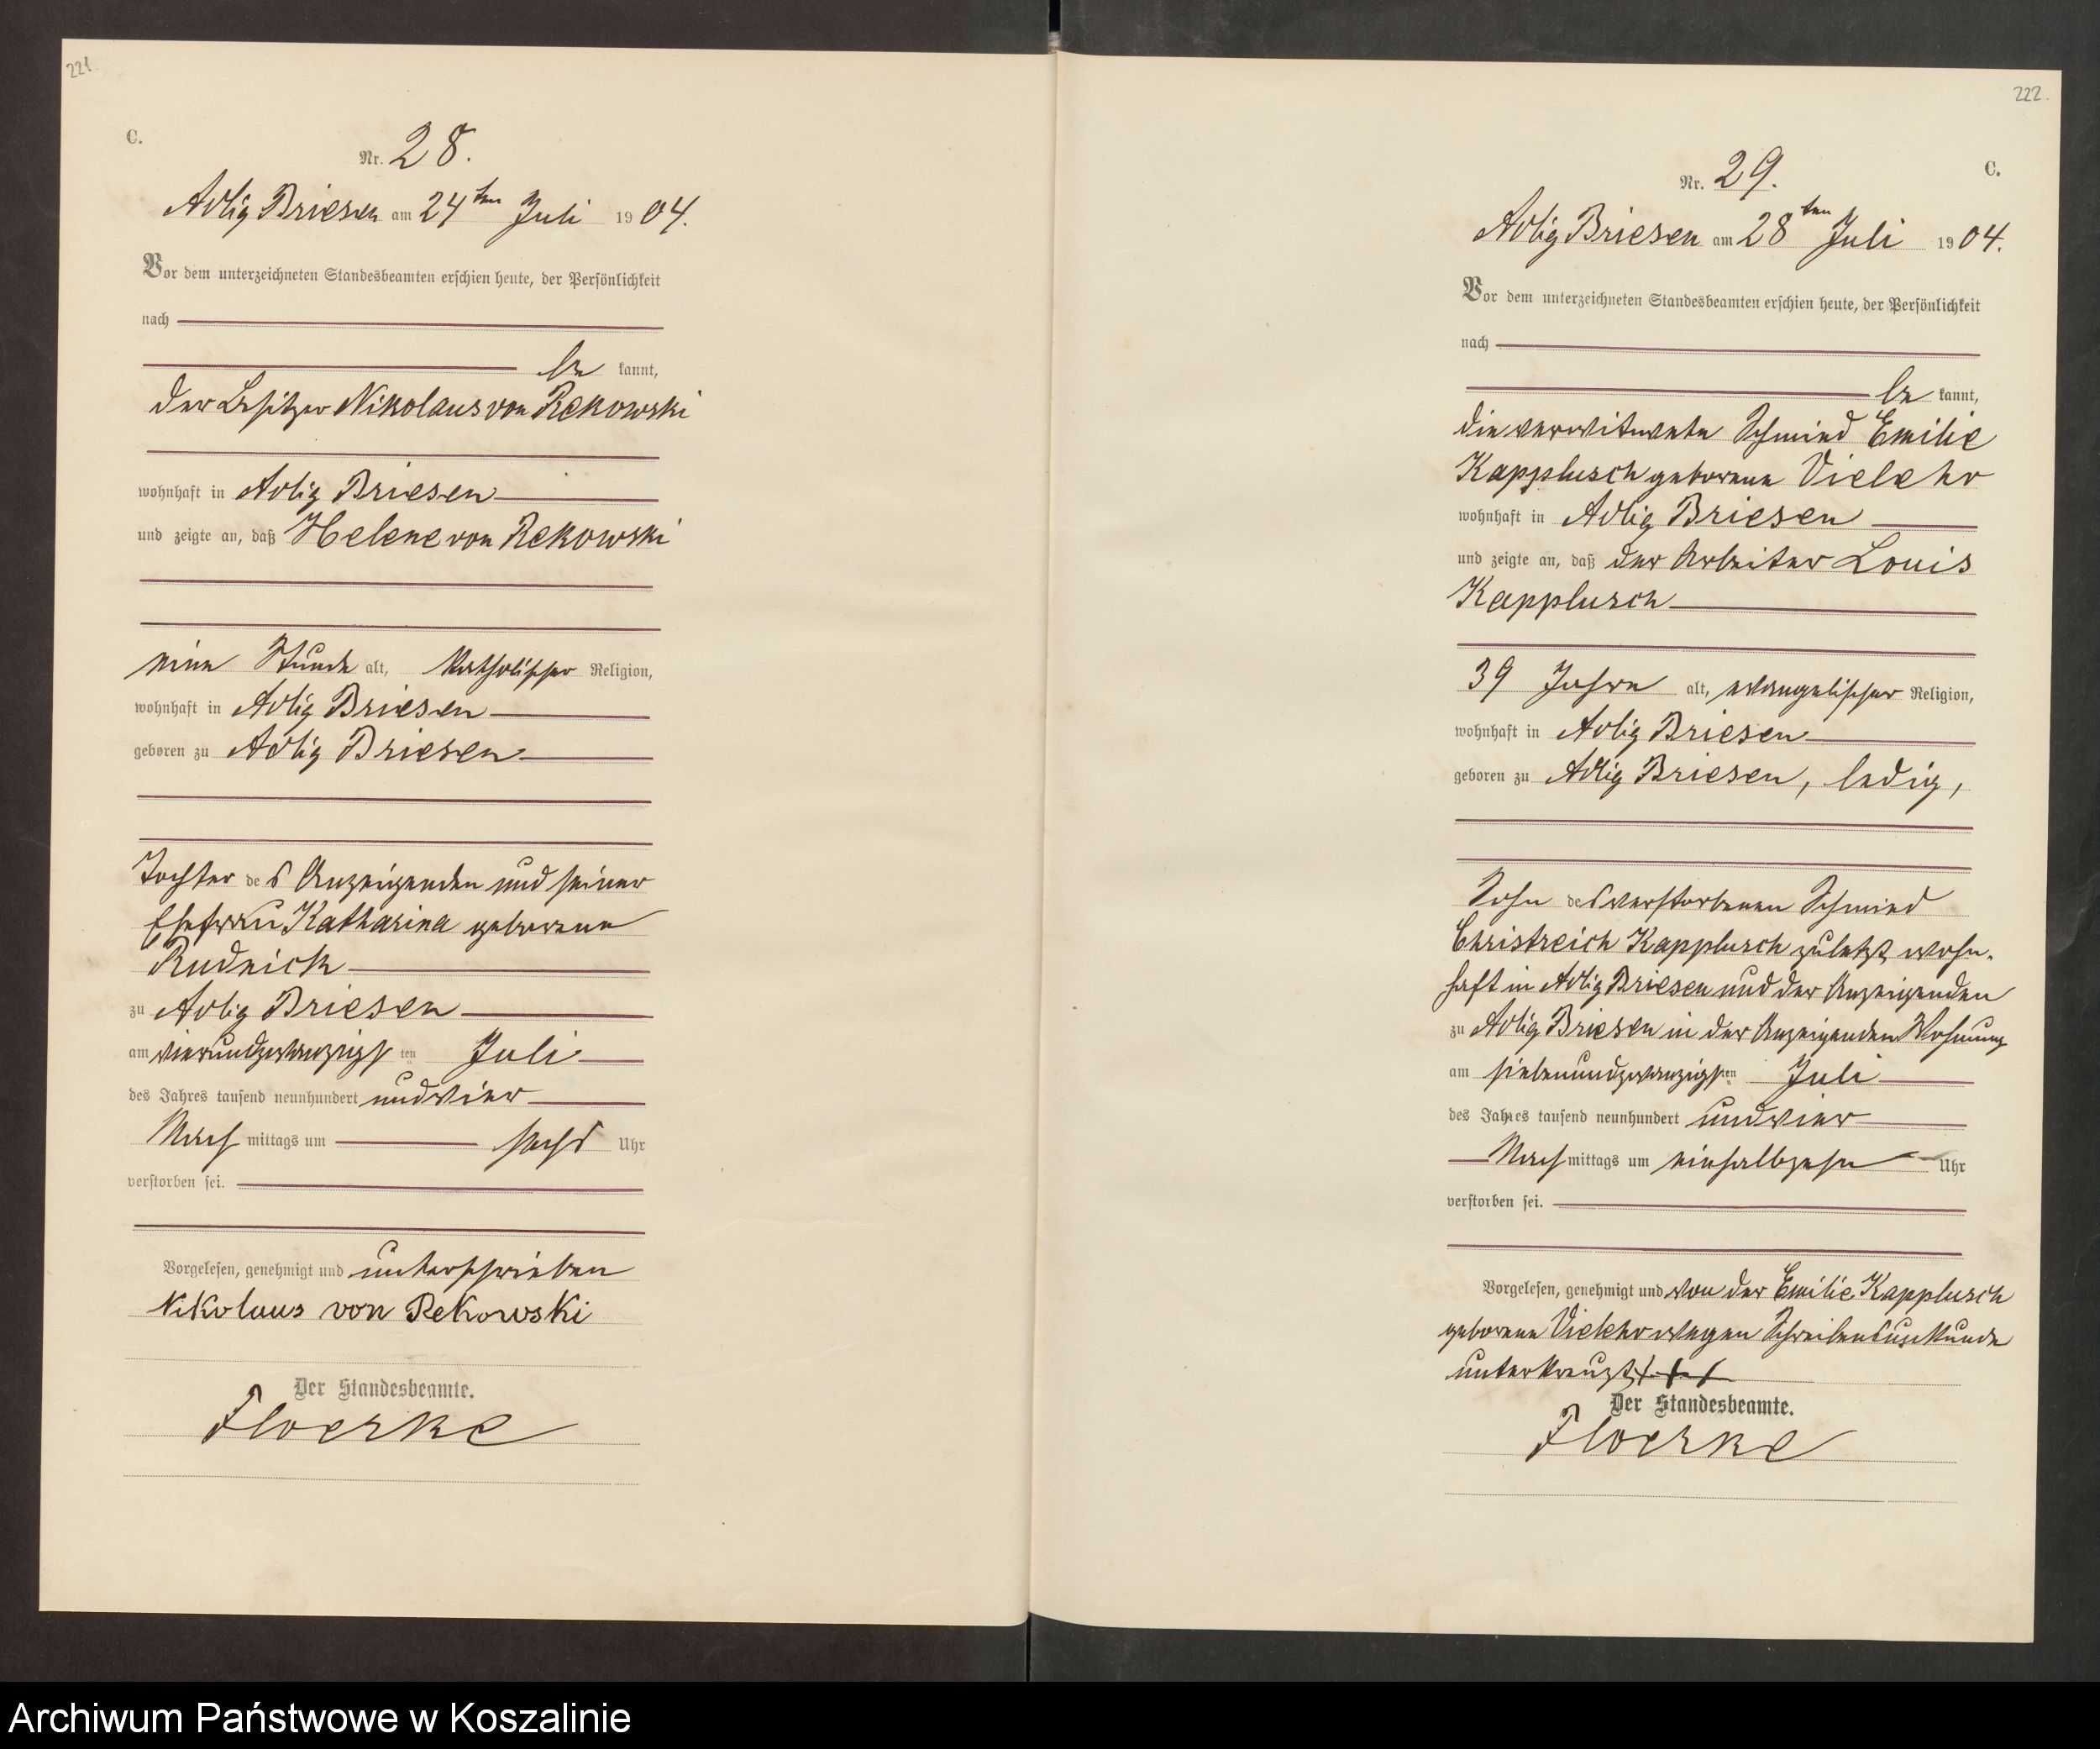 221.
C.
Nr. 28.
Adlig Briesen am 24ten Juli 1904.
Vor dem unterzeichneten Standesbeamten erschien heute, der Persönlichkeit
nach
be kannt,
der Besitzer Nikolaus von Rekowski
wohnhaft in Adlig Briesen
und zeigte an, daß Helene von Rekowski
eine Stunde alt, katholischer Religion,
wohnhaft in Adlig Briesen
geboren zu Adlig Briesen
Tochter des Anzeigenden und seiner
Ehefrau Katharina geborene
Rudnick
zu Adlig Briesen
am vierundzwanzigsten Juli
des Jahres tausend neunhundert und vier
Nach mittags um sechs Uhr
verstorben sei.
Vorgelesen, genehmigt und unterschrieben
Nikolaus von Rekowski
Der Standesbeamte.
Floerke
222.
C.
Nr. 29.
Adlig Briesen am 28ten Juli 1904.
Vor dem unterzeichneten Standesbeamten erschien heute, der Persönlichkeit
nach
be kannt,
die verwitwete Schmied Emilie
Kapplusch geborene Vielehr
wohnhaft in Adlig Briesen
und zeigte an, daß der Arbeiter Louis
Kapplusch
39 Jahre alt, evangelischer Religion,
wohnhaft in Adlig Briesen
geboren zu Adlig Briesen, ledig,
Sohn des verstorbenen Schmied
Christreich Kapplusch zuletzt wohn-
haft in Adlig Briesen und der Anzeigenden
zu Adlig Briesen in der Anzeigenden Wohnung
am siebenundzwanzigsten Juli
des Jahres tausend neunhundert und vier
Nach mittags um einhalbzehn Uhr
verstorben sei.
Vorgelesen, genehmigt und von der Emilie Kapplusch
geborene Vielehr wegen Schreibensunkunde
unterkreuzt +++
Der Standesbeamte.
Floerke
Archiwum Państwowe w Koszalinie